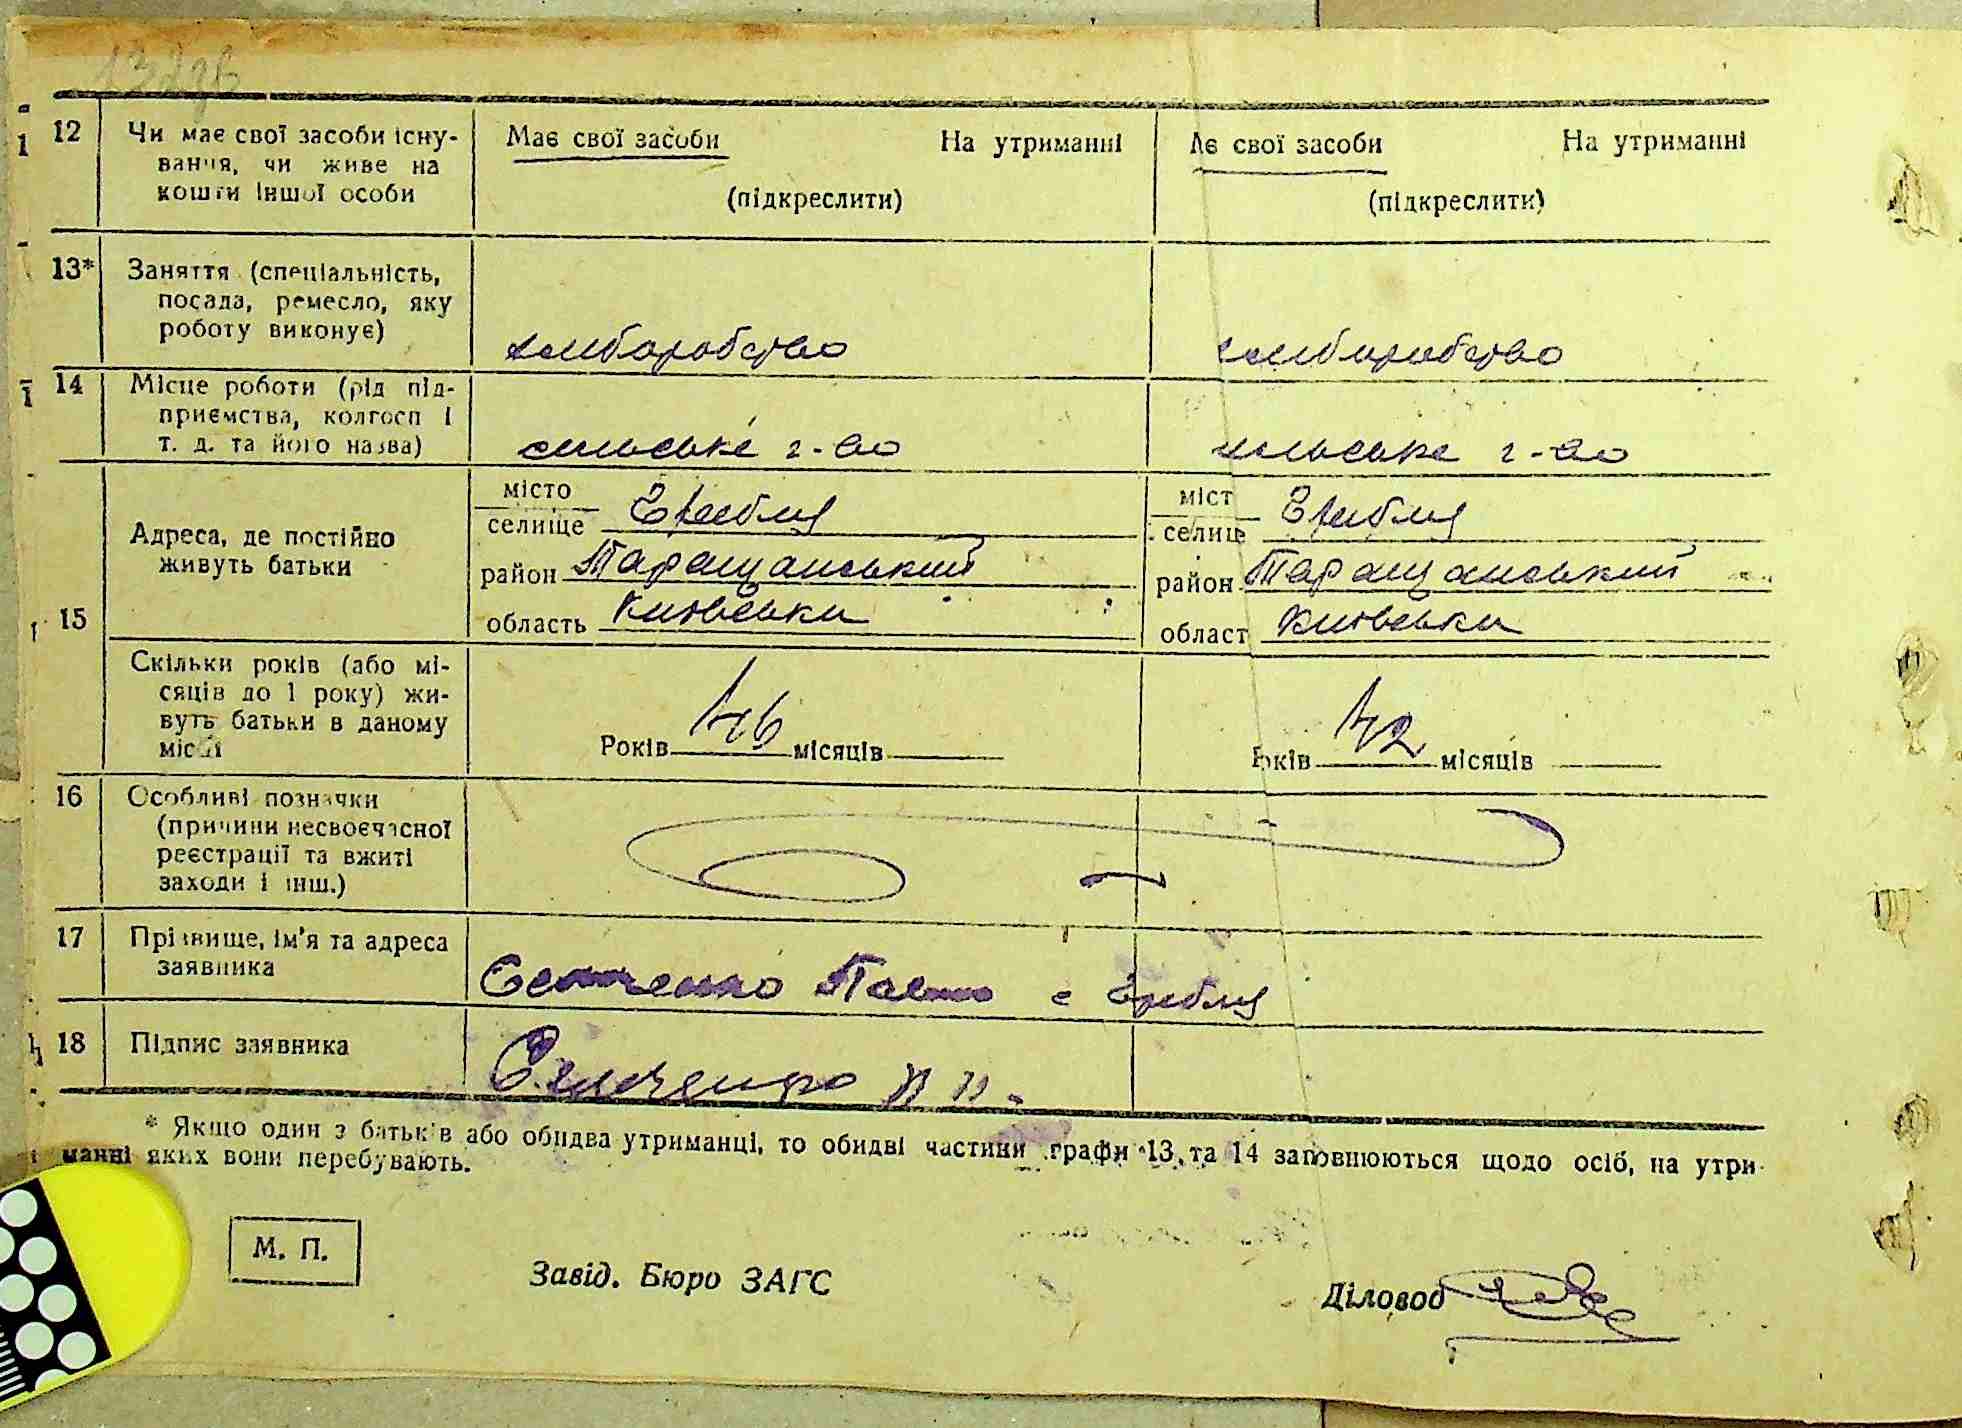 12 Чи має свої засоби існу-
вання, чи живе на
кошти іншої особи
Має свої засоби На утриманні
(підкреслити)
ає свої засоби На утриманні
(підкреслити)
13* Заняття (спеціальність,
посада, ремесло, яку
роботу виконує)
хліборобство
хліборобство
14 Місце роботи (рід під-
приємства, колгосп і
т. д. та його назва)
сільське г-во
сільське г-во
15
Адреса, де постійно
живуть батьки
місто
селище Гребля
район Таращанський
область Київська
міст
селищ Гребля
район Таращанський
област Київська
Скільки років (або мі-
сяців до 1 року) жи-
вуть батьки в даному
місці
Років 46 місяців
років 42 місяців
16 Особливі позначки
(причини несвоєчасної
реєстрації та вжиті
заходи і інш.)
17 Прізвище, ім'я та адреса
заявника
с Гребля
18 Підпис заявника
* Якщо один з батьків або обидва утриманці, то обидві частини графи 13 та 14 заповнюються щодо осіб, на утри-
манні яких вони перебувають.
М. П.
Завід. Бюро ЗАГС
Діловод